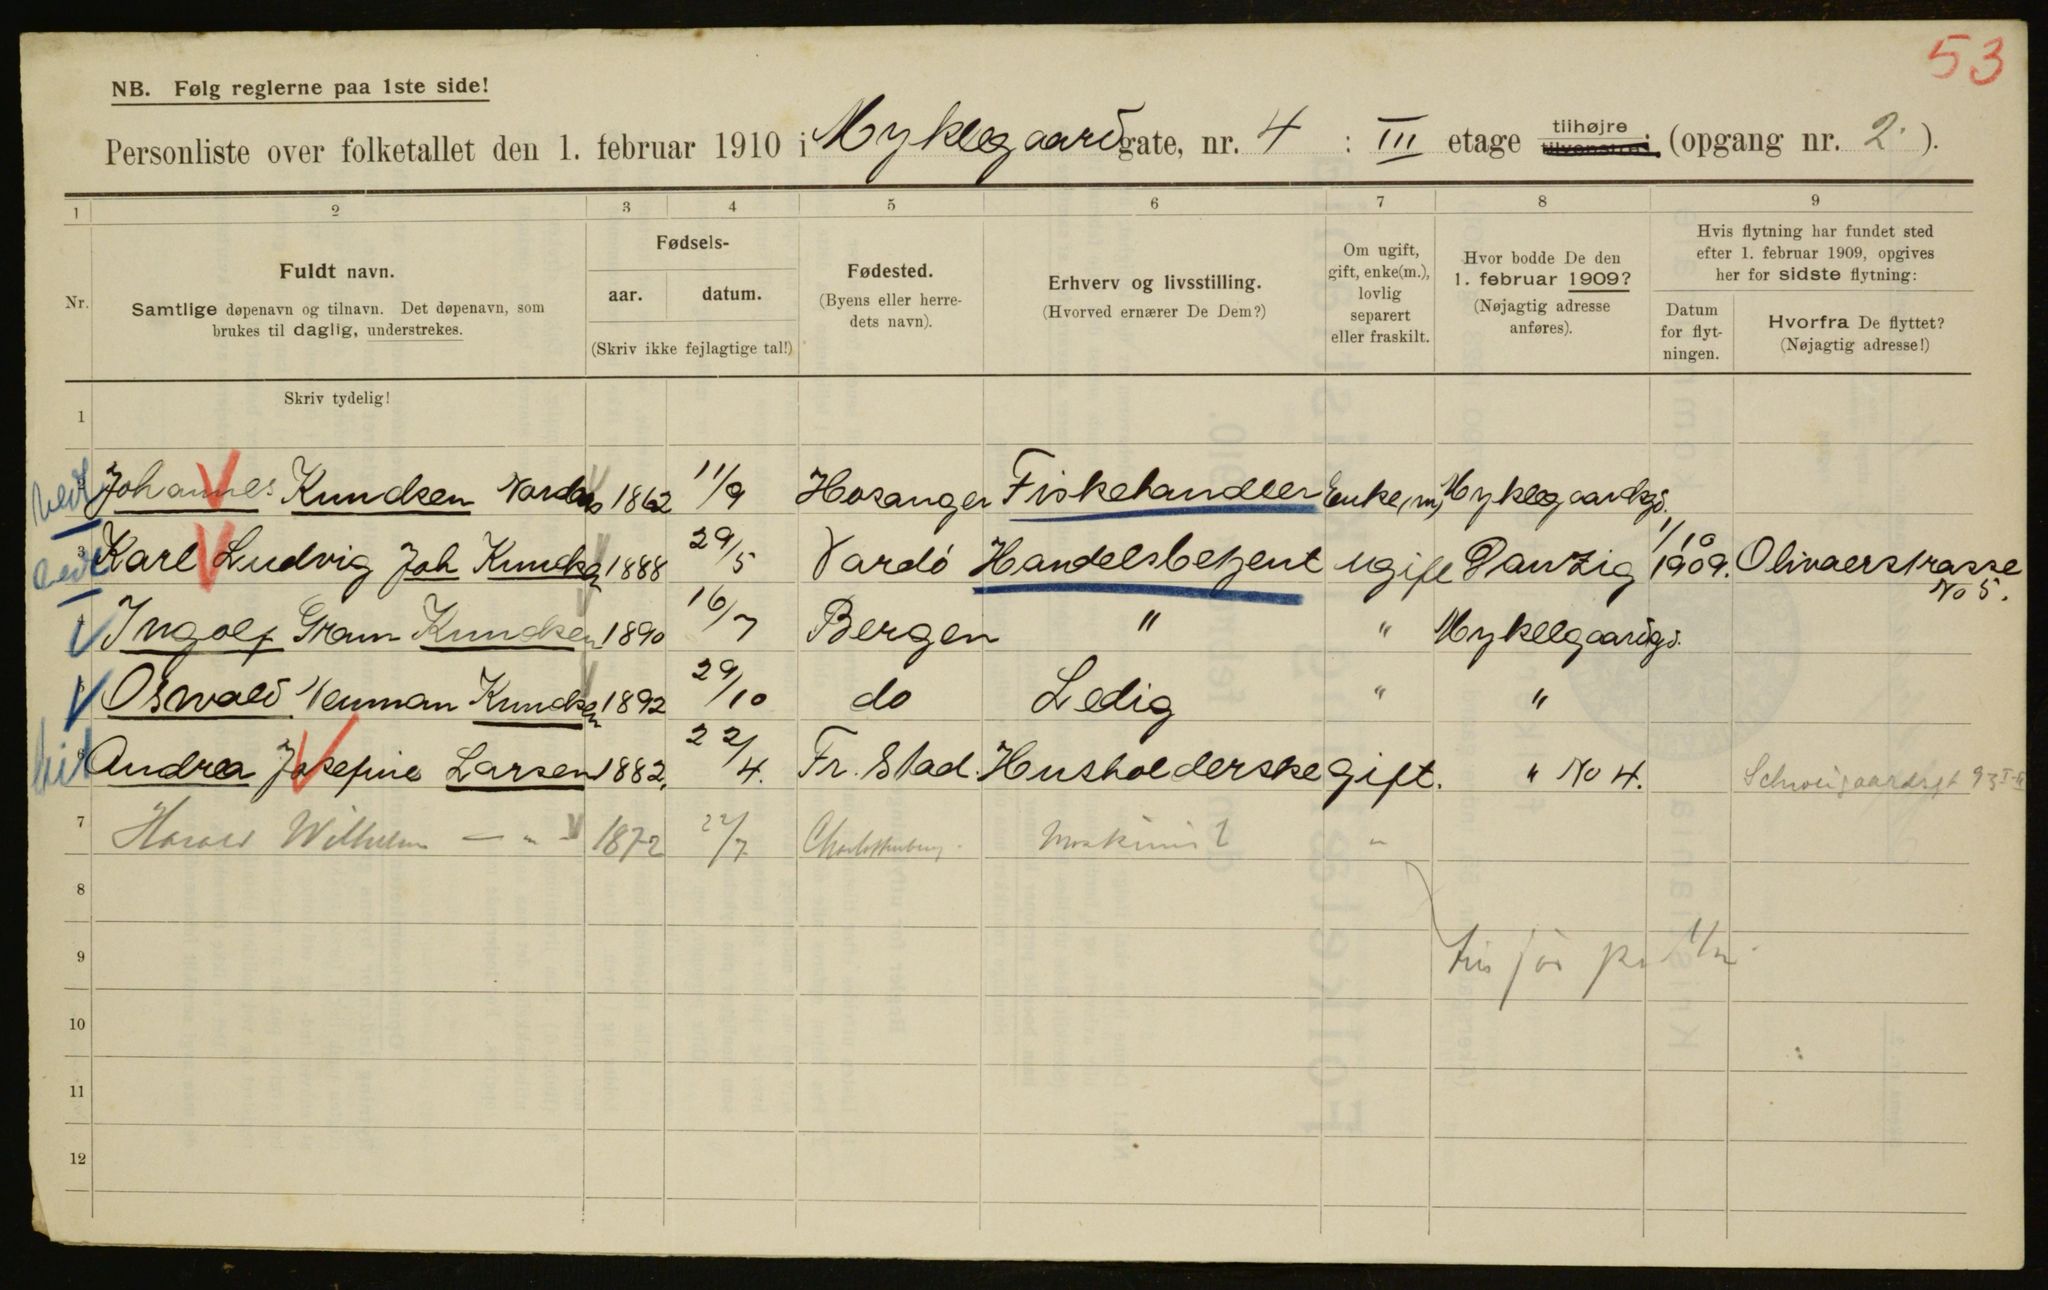 53
NB. Følg reglerne paa 1ste side!
Personliste over folketallet den 1. februar 1910 i Myklegaardgate, nr. 4 : III etage tilhøjre tilvenstre: (opgang nr. 2 ).
1 2 3 4 5 6 7 8 9
Nr.
Fuldt navn.
Samtlige døpenavn og tilnavn. Det døpenavn, som
brukes til daglig, understrekes.
Fødsels-
aar. datum.
(Skriv ikke fejlagtige tal!)
Fødested.
(Byens eller herre-
dets navn).
Erhverv og livsstilling.
(Hvorved ernærer De Dem?)
Om ugift,
gift, enke(m.),
lovlig
separert
eller fraskilt.
Hvor bodde De den
1. februar 1909?
(Nøjagtig adresse
anføres).
Hvis flytning har fundet sted
efter 1. februar 1909, opgives
her for sidste flytning:
Datum
for flyt-
ningen.
Hvorfra De flyttet?
(Nøjagtig adresse!)
Skriv tydelig!
1
2 Johannes Knudsen 1862 11/9 Hosanger Fiskehandler Enke(m) Myklegaardgs.
3 Karl Ludvig Joh Knudsen 1888 29/5 Vardö Handelsbetjent ugift Danzig 1/10 1909. Olivaerstrasse No 5.
4 Ingolf Gram Knudsen 1890 16/7 Bergen " " Myklegaardgs.
5 Oswald Neuman Knudsen 1892 29/10 do Ledig " "
6 Andrea Josefine Larsen 1882. 22/4. Fr. Stad. Husholderske gift. " No 4. Schweigaardsgt 93
7 Harald Wilhelm — " 1872 22/7 Charlottenberg. Maskinist "
8
9
10
11
12